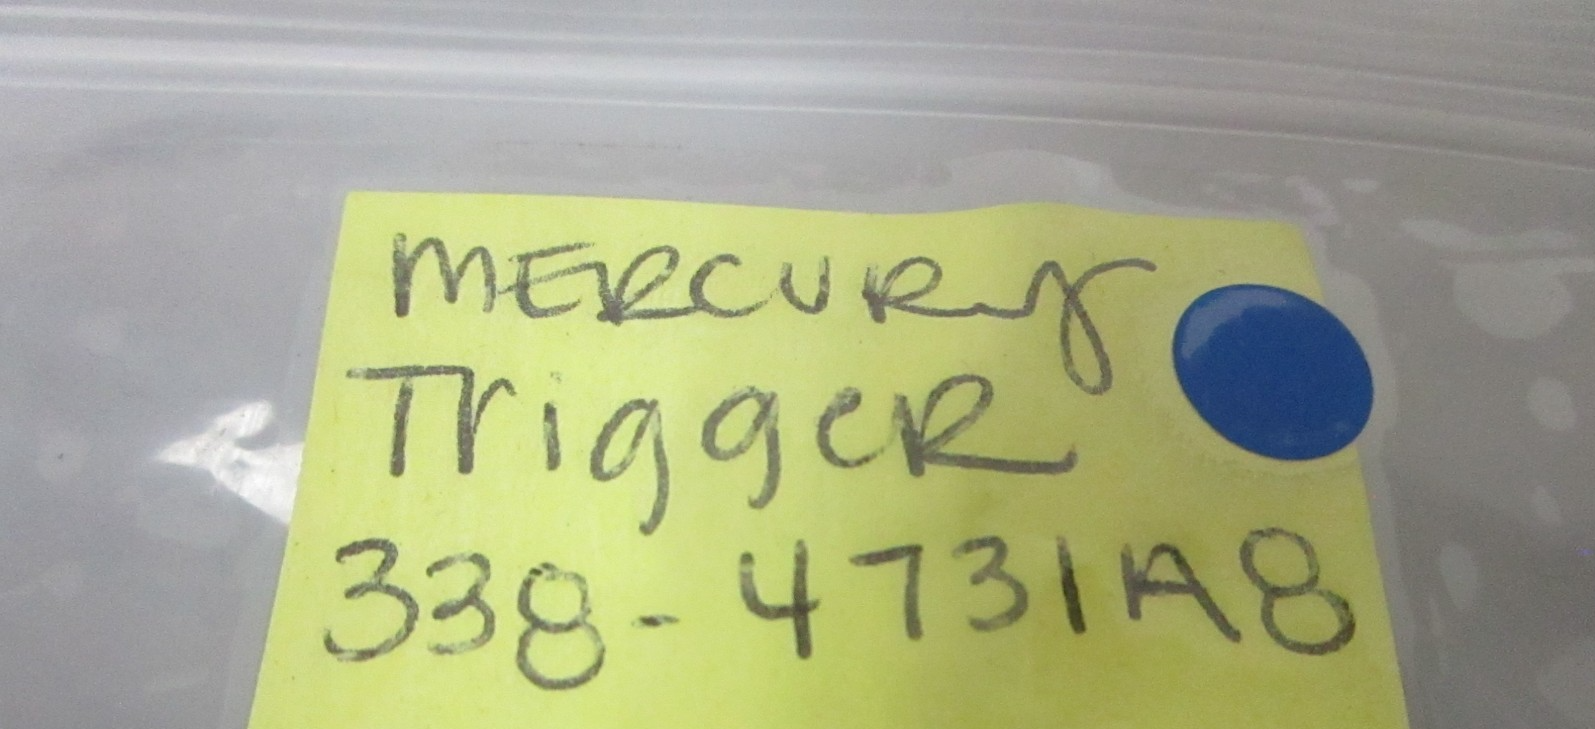 MERCURY
TriggeR
338-4731A8